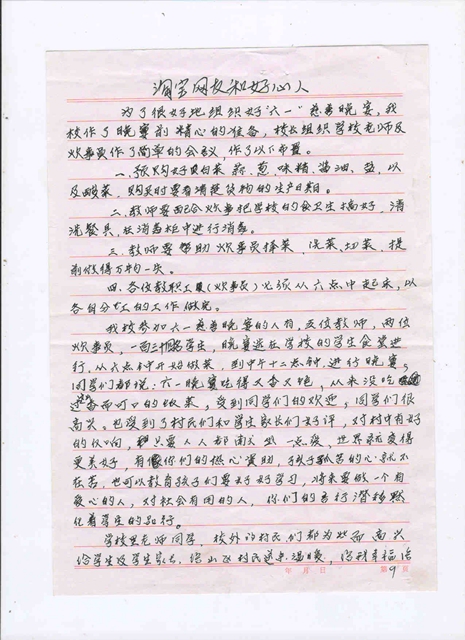 淘宝网友和好心人
为了很好地组织好"六一"慈善晚宴，我
校作了晚宴前精心的准备，校长组织学校老师及
炊事员作了简单的会议，作了以下布置。
一、采购好白菜、蒜、葱、味精、酱油、盐、以
及酸菜，购买时要看清楚货物的生产日期。
二、教师要配合炊事把学校的食卫生搞好，清
洗餐具，在消毒柜中进行消毒。
三、教师要帮助炊事员择菜、洗菜、切菜，提
前做得万均一失。
四、各位教职工（炊事员）必须从六点中起来，以
各自分工的工作做完。
我校参加六一慈善晚宴的人有，五位教师，两位
炊事员，一百三十名学生，晚宴选在学校的学生食堂进
行，从六点钟开始做菜，到中午十二点钟，进行晚宴。
同学们都说，六一晚宴吃得又香又饱，从来没吃
过香而可口的饭菜，受到同学们的欢迎，同学们很
高兴。也受到了村民们和学生家长们好评，对村中有好
的仪响，只要人人都献出一点爱，世界就变得
更美好，有你们的热心资助，孩子孤苦的心就不
在苦，也可以教育孩子们要好好学习，将来要做一个有
爱心的人，对社会有用的人，你们的善行潜移默
化着学生的品行。
学校里老师同学，校外的村民们都为此而高兴
给学生及学生家长，给山区村民送来温暖，
年 月 日 第9页